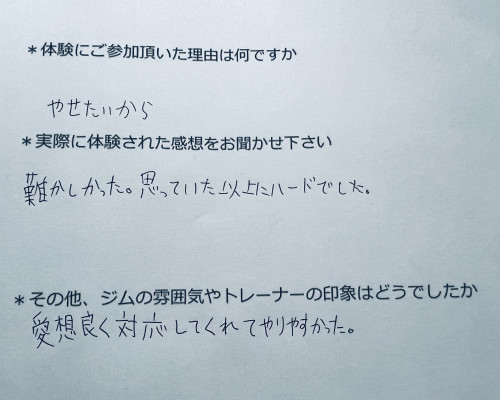 *体験にご参加頂いた理由は何ですか
やせたいから
*実際に体験された感想をお聞かせ下さい
難かしかった。思っていた以上にハードでした。
*その他、ジムの雰囲気やトレーナーの印象はどうでしたか
愛想良く対応してくれてやりやすかった。